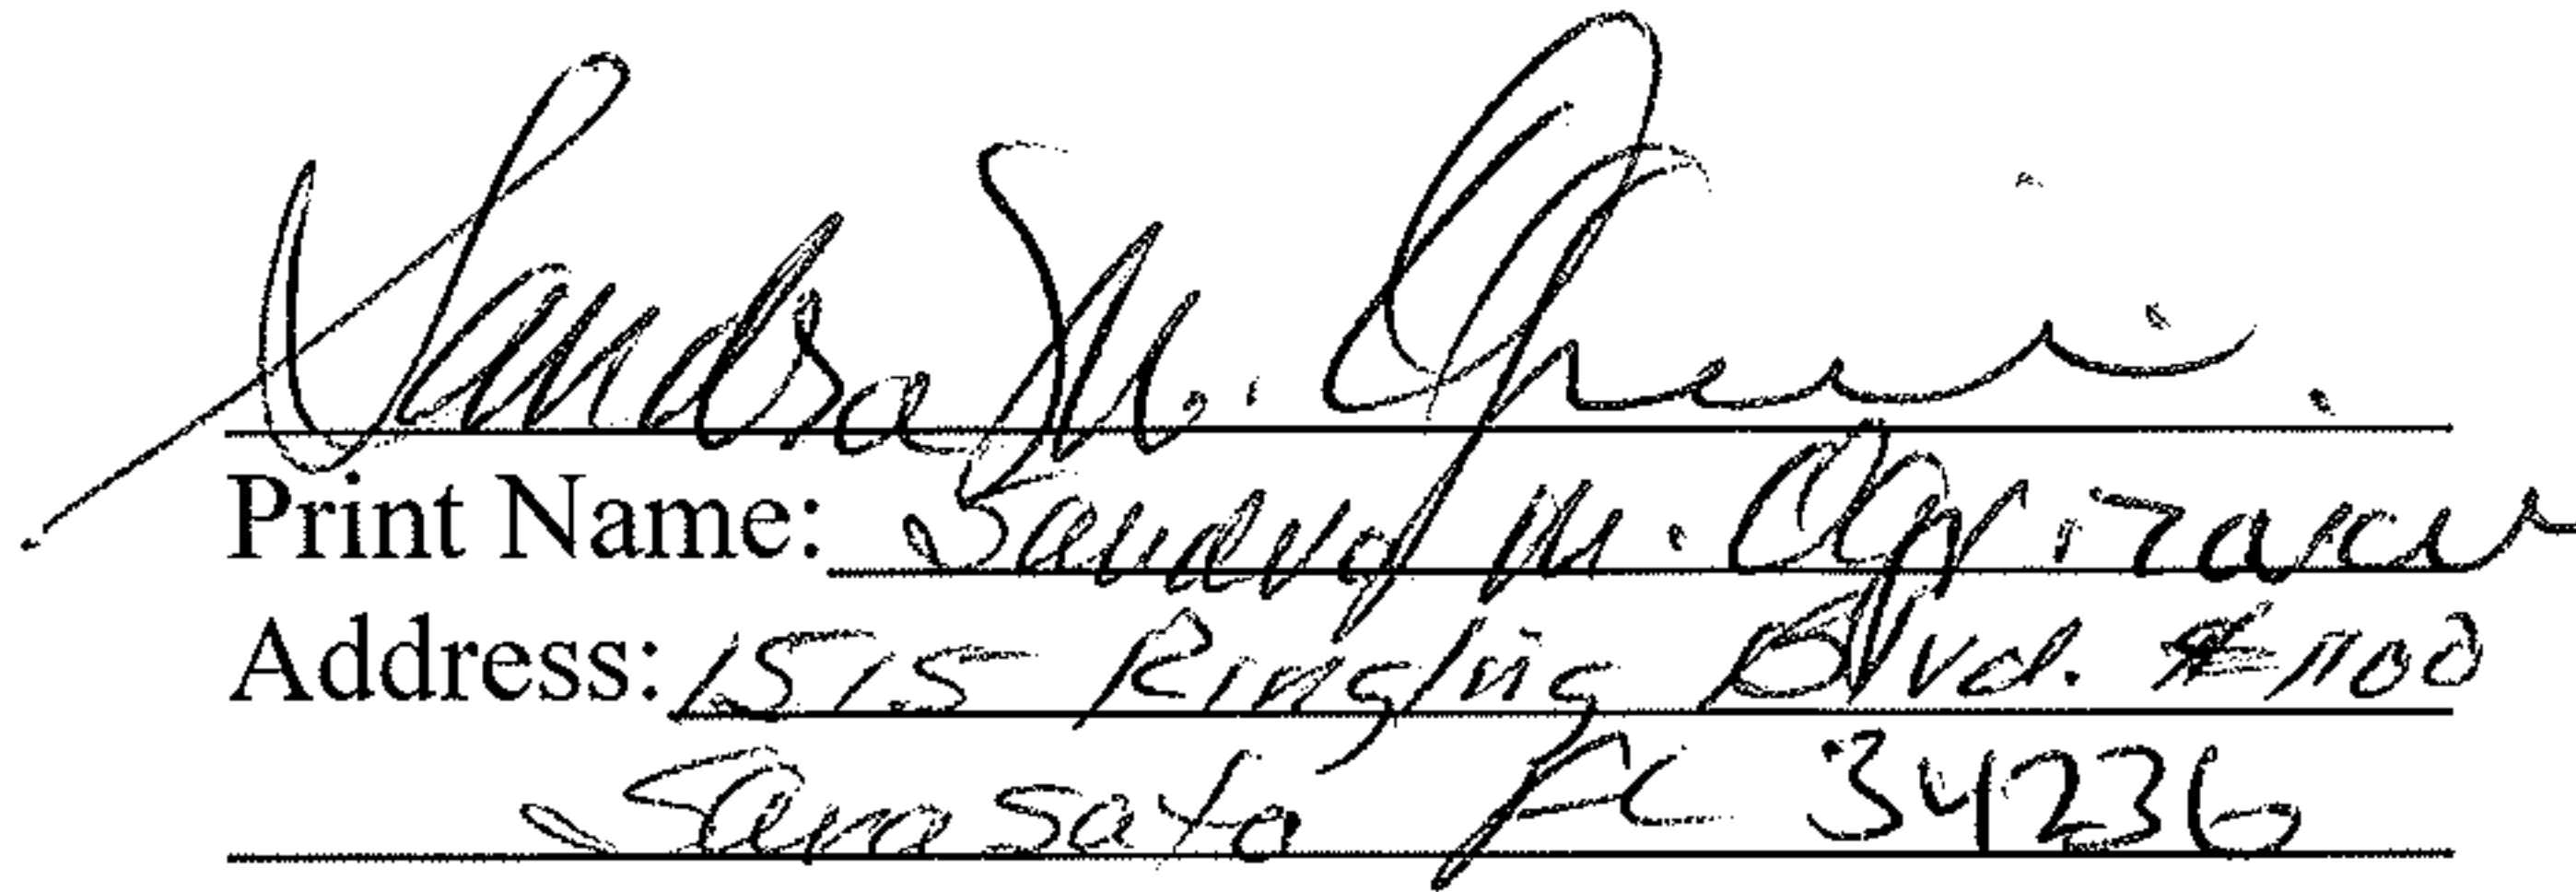 Sandra M.
Print Name: Sandra M.
Address: 1515 Ringling Blvd. #1100
Sarasota FL 34236